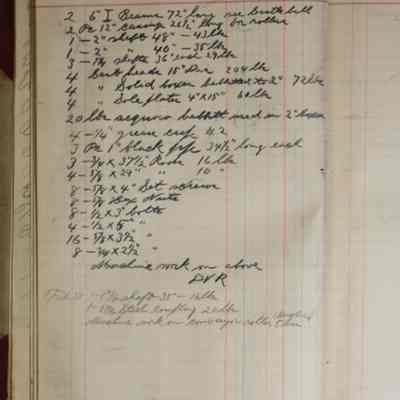 2 6" I Beams 72" long see
2 Pc 12" casings 26½" long for rollers
1 - 2" shaft 48" - 43 lbs
1 - 2" " 40" - 35 lbs
3 - shafts 36" each 29 lbs
4 heads 15" Dia 204 lbs
4 " Solid boxes babbitted to 2" 72 lbs
4 " Sole plates 4"x15" 60 lbs
20 lbs babbitt used in 2" boxes
4 - ¼" grease cups
3 Pc 1" black pipe 34½" long each
3 - ¾ x 37½ Rods 16 lbs
4 - ⅝ x 29" " 10 "
8 - ⅝ x 4" Set screws
8 - ⅝ Hex Nuts
8 - ½ x 3" bolts
4 - ½ x 5" "
16 - ⅝ x 3½ "
8 - ¾ x 2½ "
Machine work on above
DVR
shaft 35" - 16 lbs
Steel coupling 20 lbs
Machine work on conveyor roller